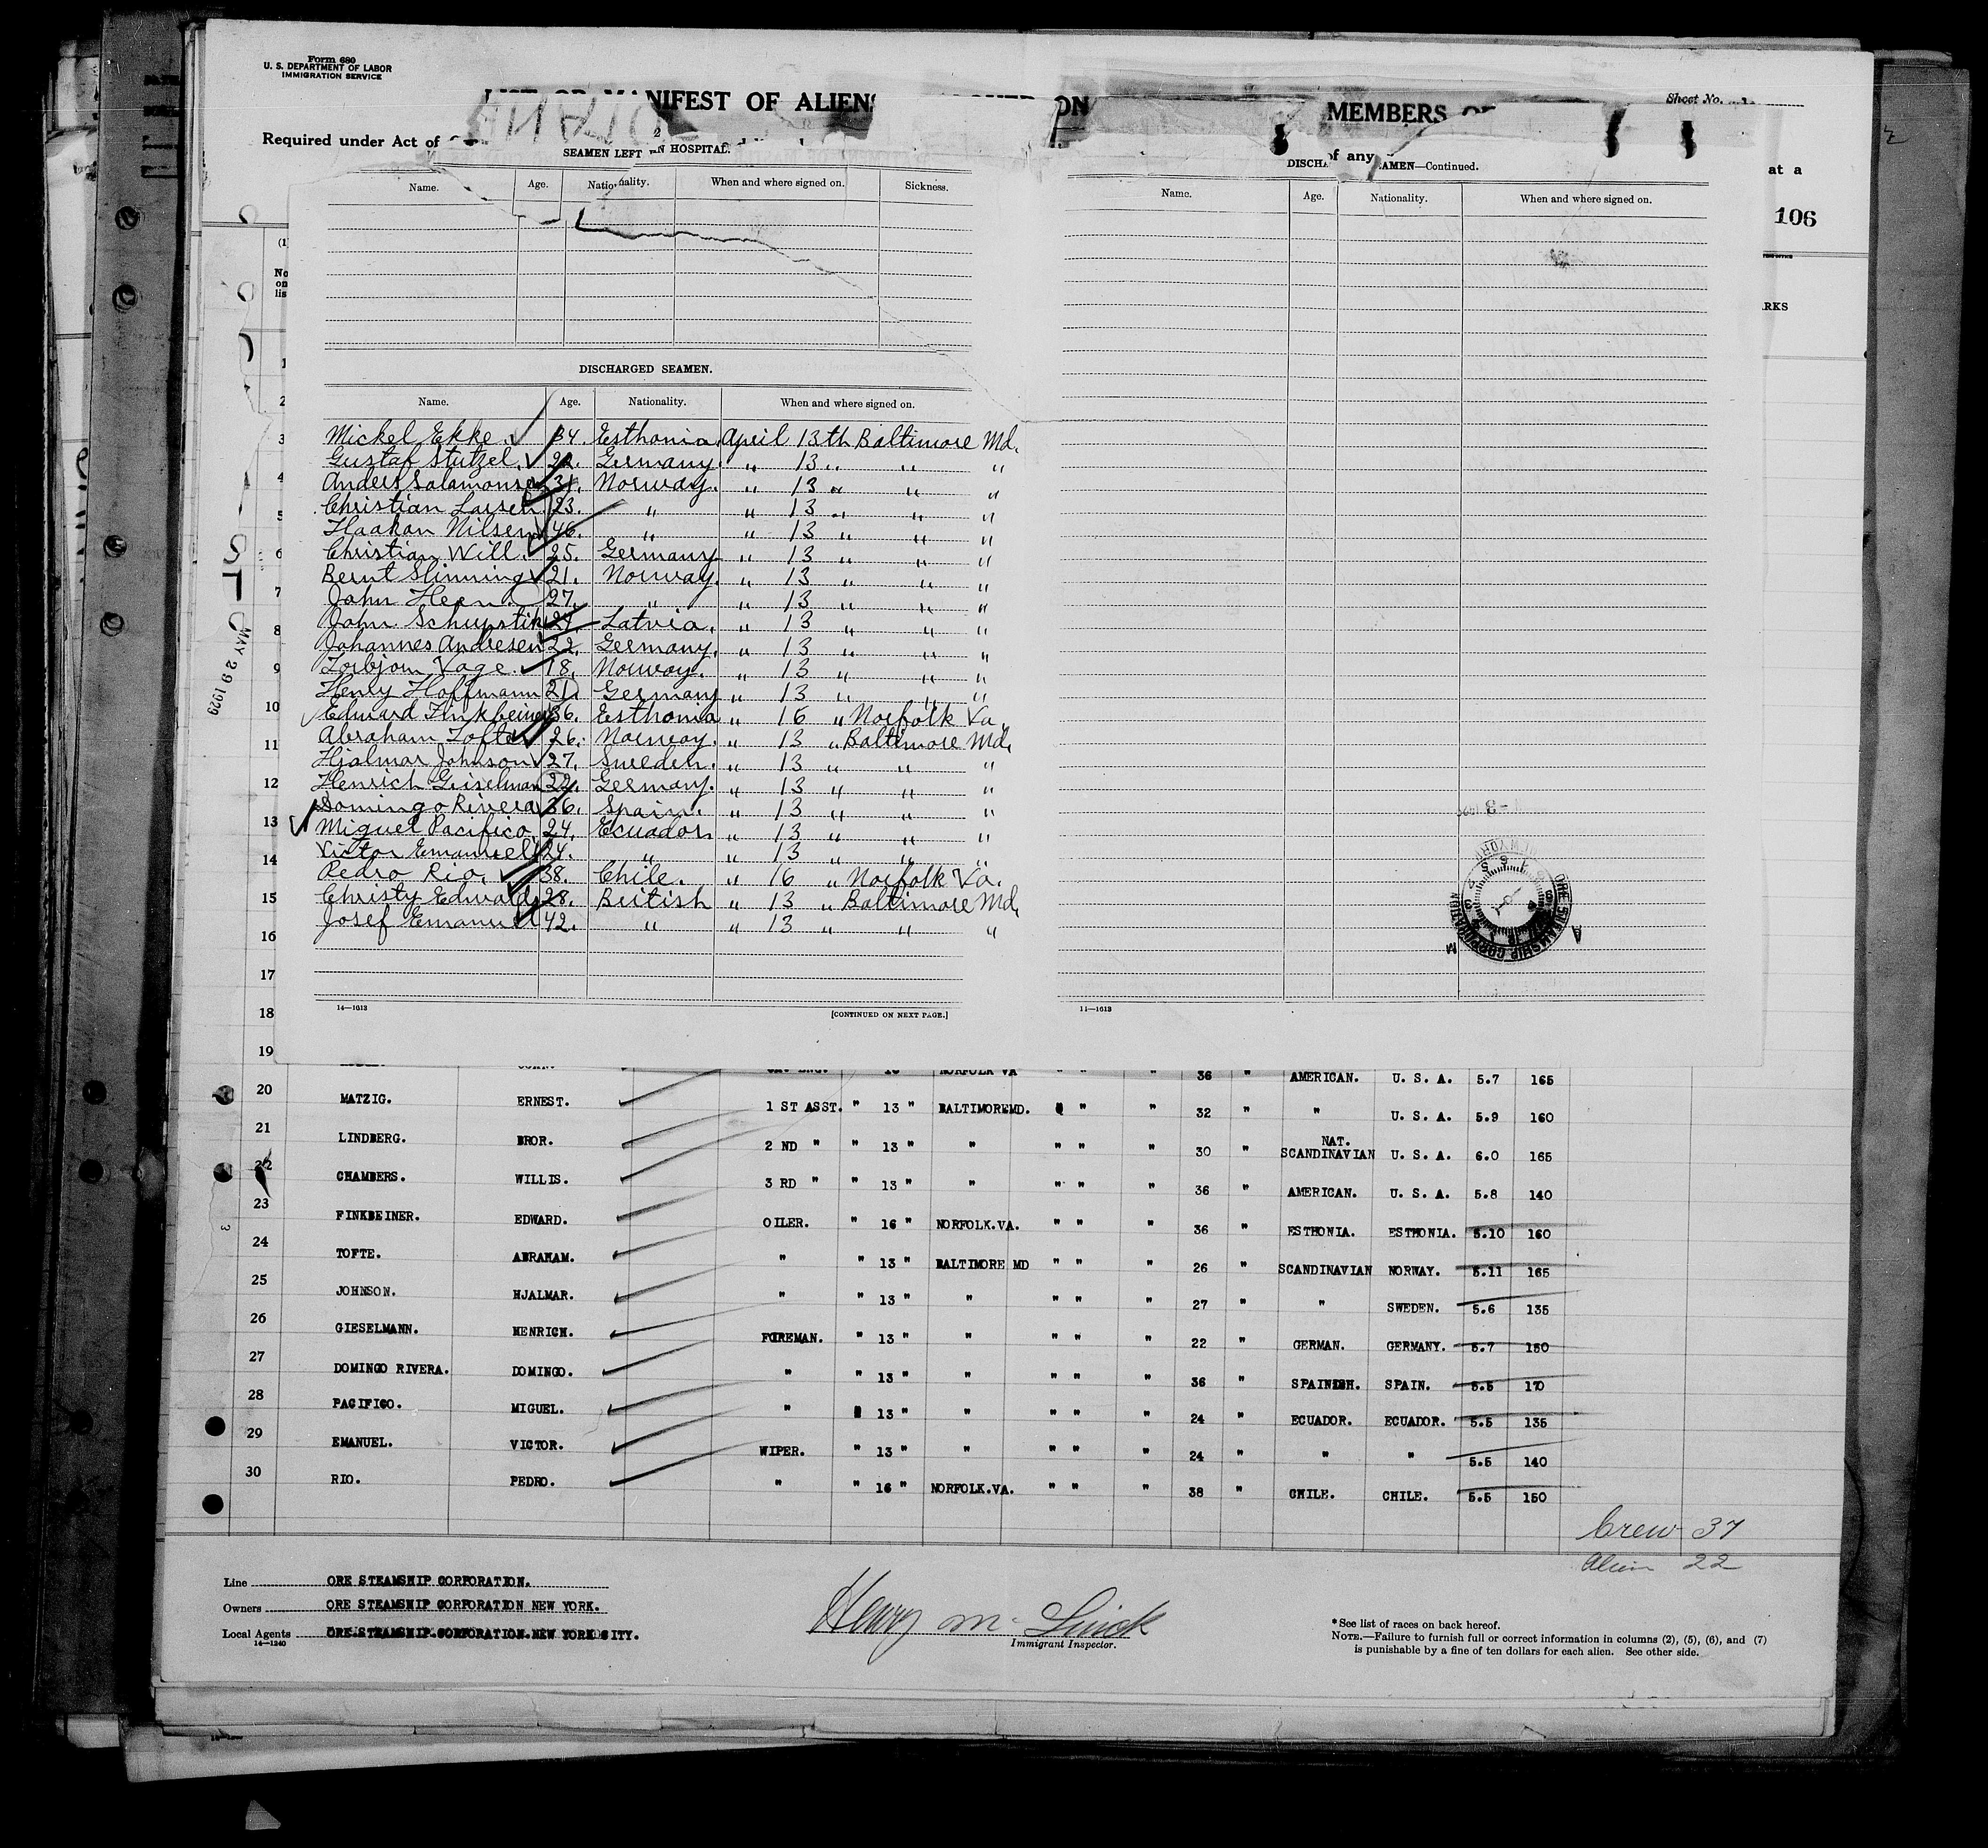 Form 680
U. S. DEPARTMENT OF LABOR
IMMIGRATION SERVICE
MANIFEST OF ALIENS
MEMBERS
Sheet No.
Required under Act of
of any
at a
106
RKS
SEAMEN LEFT IN HOSPITAL.
Name. Age. Nationality. When and where signed on. Sickness.
DISCHARGED SEAMEN.
Name. Age. Nationality. When and where signed on.
Mickel Ekke. 34. Esthonia. April 13th Baltimore Md.
Gustaf Stutzel. 22. Germany. " 13 " " "
Anders Salamonsen 31. Norway. " 13 " " "
Christian Larsen. 23. " " 13 " " "
Haakon Nilsen 46. " " 13 " " "
Christian Will. 25. Germany " 13 " " "
Bernt Slinning 21. Norway. " 13 " " "
John Heen. 27. " " 13 " " "
John Schupstik 27. Latvia. " 13 " " "
Johannes Andresen 22. Germany. " 13 " " "
Torbjorn Vage. 18. Norway. " 13 " " "
Henly Hoffmann 21. Germany " 13 " " "
Edward Finkbeiner 36. Esthonia " 16 " Norfolk Va.
Abraham Tofte 26. Norway. " 13 " Baltimore Md.
Hjalmar Johnson 27. Sweden. " 13 " " "
Henrich Geiselman 22. Germany. " 13 " " "
Domingo Rivera 36. Spain. " 13 " " "
Miguel Pacifico. 24. Ecuador " 13 " " "
Victor Emanuel 24. " " 13 " " "
Pedro Rio. 38. Chile. " 16 " Norfolk Va.
Christy Edwards 28. British " 13 " Baltimore Md.
Josef Emanuel 42. " " 13 " " "
14—1613
[CONTINUED ON NEXT PAGE.]
DISCHARGED SEAMEN—Continued.
Name. Age. Nationality. When and where signed on.
ORE STEAMSHIP CORPORATION
11—1613
MAY 29 1929
(1)
No
on
lis
1
2
3
4
5
6
7
8
9
10
11
12
13
14
15
16
17
18
19
NORFOLK VA " " " 36 " AMERICAN. U. S. A. 5.7 165
20 MATZIG. ERNEST. 1 ST ASST. " 13 " BALTIMORE MD. " " 32 " " U. S. A. 5.9 160
21 LINDBERG. BROR. 2 ND " " 13 " " " " " 30 " NAT. SCANDINAVIAN U. S. A. 6.0 165
22 CHAMBERS. WILLIS. 3 RD " " 13 " " " " " 36 " AMERICAN. U. S. A. 5.8 140
23 FINKBEINER. EDWARD. OILER. " 16 " NORFOLK.VA. " " " 36 " ESTHONIA. ESTHONIA. 5.10 160
24 TOFTE. ABRAHAM. " " 13 " BALTIMORE MD " " " 26 " SCANDINAVIAN NORWAY. 5.11 165
25 JOHNSON. HJALMAR. " " 13 " " " " " 27 " " SWEDEN. 5.6 135
26 GIESELMANN. HENRICH. FOREMAN. " 13 " " " " " 22 " GERMAN. GERMANY. 5.7 150
27 DOMINGO RIVERA. DOMINGO. " " 13 " " " " " 36 " SPANISH. SPAIN. 5.5 170
28 PACIFICO. MIGUEL. " 13 " " " " " 24 " ECUADOR. ECUADOR. 5.5 135
29 EMANUEL. VICTOR. WIPER. " 13 " " " " " 24 " " " 5.5 140
30 RIO. PEDRO. " " 16 " NORFOLK.VA. " " " 38 " CHILE. CHILE. 5.5 150
Crew 37
Alien 22
Line ORE STEAMSHIP CORPORATION.
Owners ORE STEAMSHIP CORPORATION NEW YORK.
Local Agents ORE STEAMSHIP CORPORATION. NEW YORK CITY.
14—1240
Henry M.
Immigrant Inspector.
*See list of races on back hereof.
NOTE.—Failure to furnish full or correct information in columns (2), (5), (6), and (7)
is punishable by a fine of ten dollars for each alien. See other side.